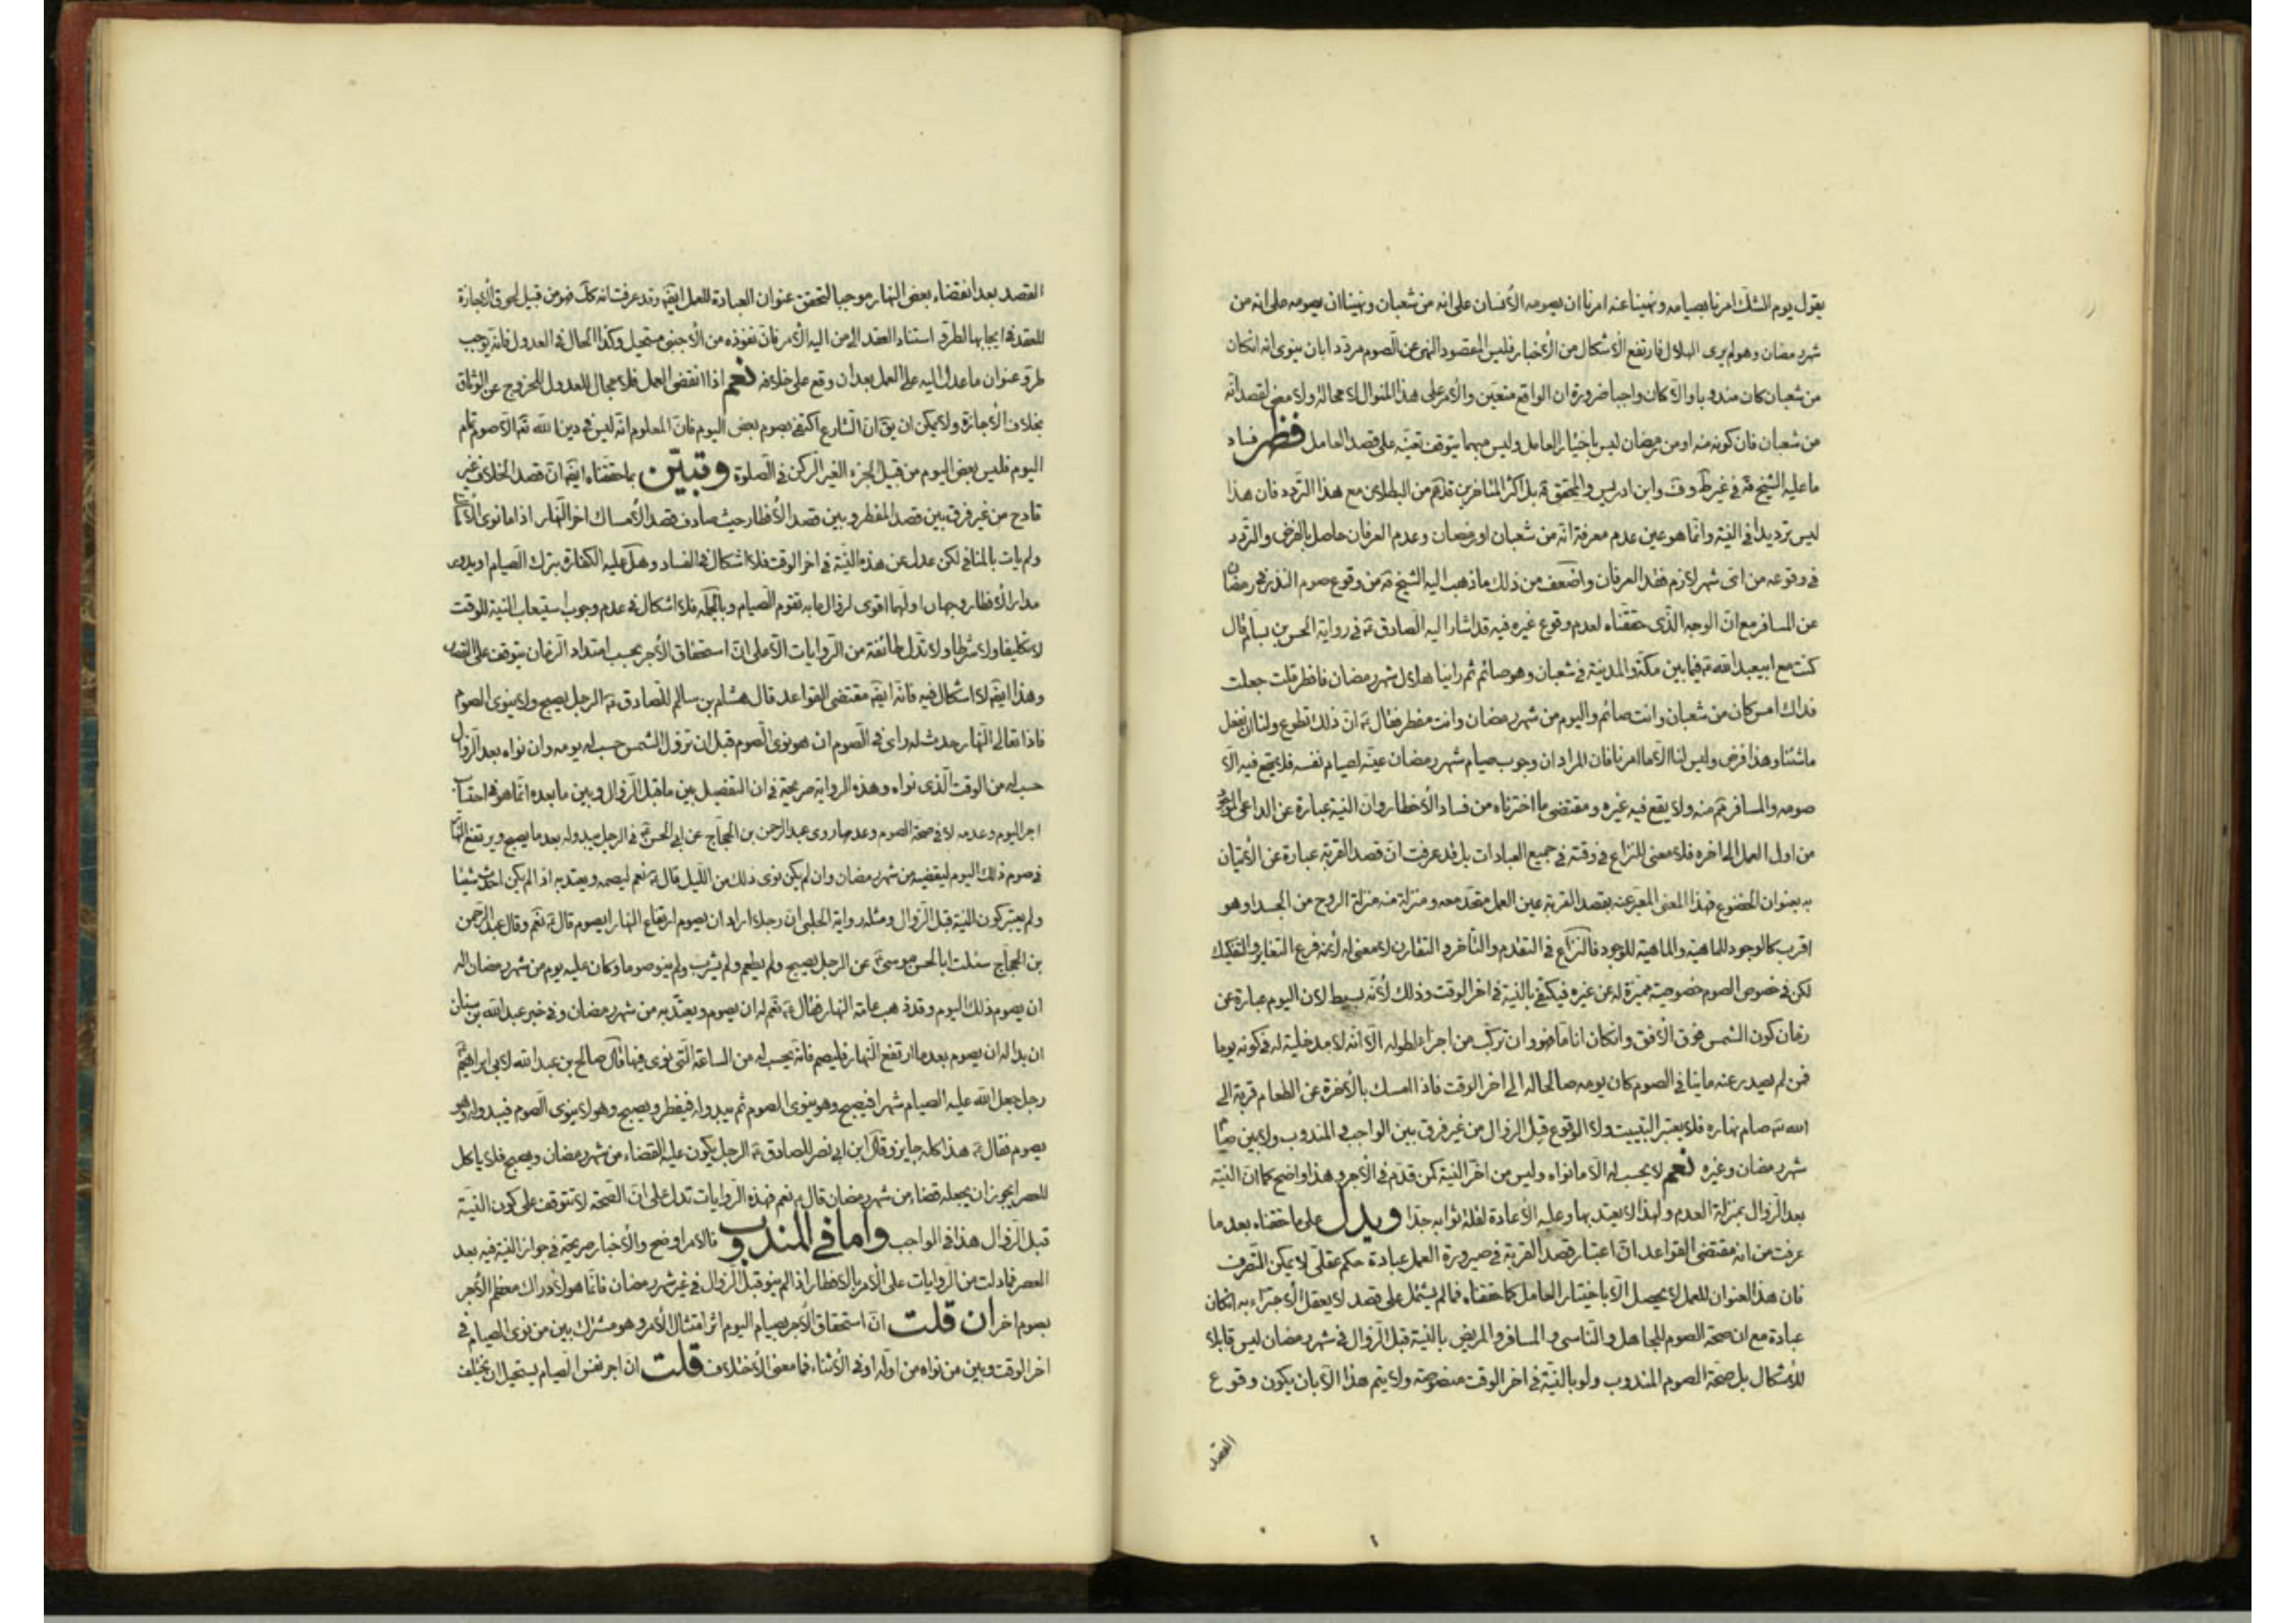 يقول يوم الشك امرنا بصيامه ونهينا عنه امرنا ان يصومه الأنسان على انه من شعبان ونهينا ان يصومه على انه من
شهر رمضان وهو لم يرى الهلال فارتفع الأشكال من الأخبار فليس المقصود النهى عن الصوم مرددا بان ينوى انه انكان
من شعبان كان مندوبا والا كان واجبا ضرورة ان الواقع متعين والأمر على هذا المنوال لا محالة ولا معنى لقصد انه
من شعبان فان كونه منه او من رمضان ليس باختيار العامل وليس مبهما يتوقف تعينه على قصد العامل فظهر فساد
ما عليه الشيخ ره فى غير ط و ف وابن ادريس والمحقق ره بل اكثر المتأخرين قدهم من البطلان مع هذا التردد فان هذا
ليس ترديدا فى النية وانما هو عين عدم معرفة انه من شعبان او رمضان وعدم العرفان حاصل بالفرض والتردد
فى وقوعه من اى شهر لازم فقد العرفان واضعف من ذلك ما ذهب اليه الشيخ ره من وقوع صوم النذر فى رمضان
عن المسافر مع ان الوجه الذى حققناه لعدم وقوع غيره فيه قد اشار اليه الصادق ع فى رواية الحسن بن بسام قال
كنت مع ابيعبد الله ع فيما بين مكة والمدينة فى شعبان وهو صائم ثم راينا هلال شهر رمضان فافطر قلت جعلت
فداك امس كان من شعبان وانت صائم واليوم من شهر رمضان وانت مفطر فقال ع ان ذلك تطوع ولنا ان نفعل
ما شئنا وهذا فرض وليس لنا الا ما امرنا فان المراد ان وجوب صيام شهر رمضان عينه لصيام نفسه فلا يقع فيه الا
صومه والمسافر ثم منه ولا يقع فيه غيره ومقتضى ما اخترناه من فساد الأخطار وان النية عبارة عن الداعى
من اول العمل الى اخره فلا معنى للنزاع فى وقته فى جميع العبادات بل قد عرفت ان قصد القربة عبارة عن الأتيان
به بعنوان الخضوع فهذا المعنى المعبر عنه بقصد القربة عين العمل متحد معه ومنزلة منه منزلة الروح من الجسد او هو
اقرب كالوجود للماهية والماهية للوجود فالنزاع فى التقدم والتأخر والتقارن لا معنى له لأنه فرع التغاير والتفكيك
لكن فى خصوص الصوم خصوصية مميزة له عن غيره فيكتفى بالنية فى اخر الوقت وذلك لأنه بسيط لان اليوم عبارة عن
زمان كون الشمس فوق الأفق وانكان اناما فهو وان تركب من اجزاء لطوله الا انه لا مدخلية له فى كونه يوما
فمن لم يصدر عنه ما ينافى الصوم كان يومه صالحا له الى اخر الوقت فاذا امسك بالأخرة عن الطعام قربة الى
الله ته صام نهاره فلا يعتبر التبييت ولا الوقوع قبل الزوال من غير فرق بين الواجب والمندوب ولا بين صيام
شهر رمضان وغيره نعم لا يحسب له الا ما نواه وليس من اخر النية كمن قدم فى الأجر وهذا واضح كما ان النية
بعد الزوال بمنزلة العدم ولهذا لا يعتد بها وعليه الأعادة لقلة ثوابه جدا ويدل على ما حققناه بعد ما
عرفت من انه مقتضى القواعد ان اعتبار قصد القربة فى صيرورة العمل عبادة حكم عقلى لا يمكن التصرف
فان هذا العنوان للعمل لا يحصل الا باختيار العامل كما حققناه فما لم يشتمل على قصد لا يعقل الأجتزاء به انكان
عبادة مع ان صحة الصوم للجاهل والناسى والمسافر والمريض بالنية قبل الزوال فى شهر رمضان ليس قابلا
للأشكال بل صحة الصوم المندوب ولو بالنية فى اخر الوقت منصوصة ولا يتم هذا الا بان يكون وقوع
القصد
القصد بعد انقضاء بعض النهار موجبا لتحقق عنوان العبادة للعمل ايضا وقد عرفت انه كك فهو من قبيل لحوق الأجازة
للعقد فى ايجابها لطرو استناد العقد الى من اليه الأمر فان نفوذه من الأجنبى مستحيل وكذا الحال فى العدول فانه يوجب
طرو عنوان ما عدل اليه على العمل بعد ان وقع على خلافه نعم اذا انقضى العمل فلا مجال للعدول للخروج عن الوثاق
بخلاف الأجازة ولا يمكن ان يق ان الشارع اكتفى بصوم بعض اليوم فان المعلوم انه ليس فى دين الله ته الا صوم تمام
اليوم فليس بعض اليوم من قبيل الجزء الغير الركن فى الصلوة وتبين بما حققناه ايضا ان قصد الخلاف غير
قادح من غير فرق بين قصد المفطر وبين قصد الأفطار حيث صادف قصد الأمساك اخر النهار اذا ما نوى
ولم يات بالمنافى لكن عدل عن هذه النية فى اخر الوقت فلا اشكال فى الفساد وهل عليه الكفارة بترك الصيام او يدور
مدار الأفطار وجهان اولهما اقوى لزوال ما به تقوم الصيام وبالجملة فلا اشكال فى عدم وجوب استيعاب النية للوقت
لا تكليفا ولا شرطا ولا تدل طائفة من الروايات الا على ان استحقاق الأجر بحسب امتداد الزمان يتوقف على القصد
وهذا ايضا لا اشكال فيه فانه ايضا مقتضى القواعد قال هشام بن سالم للصادق ع الرجل يصبح ولا ينوى الصوم
فاذا تعالى النهار حدث له راى فى الصوم ان هو نوى الصوم قبل ان تزول الشمس حسب له يومه وان نواه بعد الزوال
حسب له من الوقت الذى نواه وهذه الرواية صريحة فى ان التفصيل بين ما قبل الزوال وبين ما بعده انما هو فى احتساب
اجر اليوم وعدمه لا فى صحة الصوم وعدمها روى عبد الرحمن بن الحجاج عن ابى الحسن ع فى الرجل يبدو له بعد ما يصبح ويرتفع النهار
فى صوم ذلك اليوم ليقضيه من شهر رمضان وان لم يكن نوى ذلك من الليل قال ع نعم ليصمه ويعتد به اذا لم يكن احدث شيئا
ولم يعتبر كون النية قبل الزوال ومثله رواية الحلبى ان رجلا اراد ان يصوم ارتفاع النهار ايصوم قال ع نعم وقال عبد الرحمن
بن الحجاج سئلت ابا الحسن موسى ع عن الرجل يصبح ولم يطعم ولم يشرب ولم ينو صوما وكان عليه يوم من شهر رمضان اله
ان يصوم ذلك اليوم وقد ذهب عامة النهار فقال ع نعم له ان يصوم ويعتد به من شهر رمضان وفى خبر عبد الله بن سنان
ان بدا له ان يصوم بعد ما ارتفع النهار فليصم فانه يحسب له من الساعة التى نوى فيها قال صالح بن عبد الله لابى ابراهيم ع
رجل جعل الله عليه الصيام شهرا فيصبح وهو ينوى الصوم ثم يبدو له فيفطر ويصبح وهو لا ينوى الصوم فيبدو له
يصوم فقال ع هذا كله جايز وقال ابن ابى نصر للصادق ع الرجل يكون عليه القضاء من شهر رمضان ويصبح فلا ياكل
للعصر ايجوز ان يجعله قضاء من شهر رمضان قال ع نعم فهذه الروايات تدل على ان الصحة لا تتوقف على كون النية
قبل الزوال هذا فى الواجب واما في المندوب فالامر اوضح والأخبار صريحة فى جواز النية فيه بعد
العصر فما دلت من الروايات على الأمر بالافطار اذا لم ينو قبل الزوال فى غير شهر رمضان فانما هو لادراك معظم الأجر
بصوم اخر ان قلت ان استحقاق الأجر بصيام اليوم اثر امتثال الأمر وهو مشترك بين من نوى الصيام فى
اخر الوقت وبين من نواه من اوله او فى الأثناء فما معنى الأختلاف قلت ان اجر نفس الصيام يستحيل ان يختلف